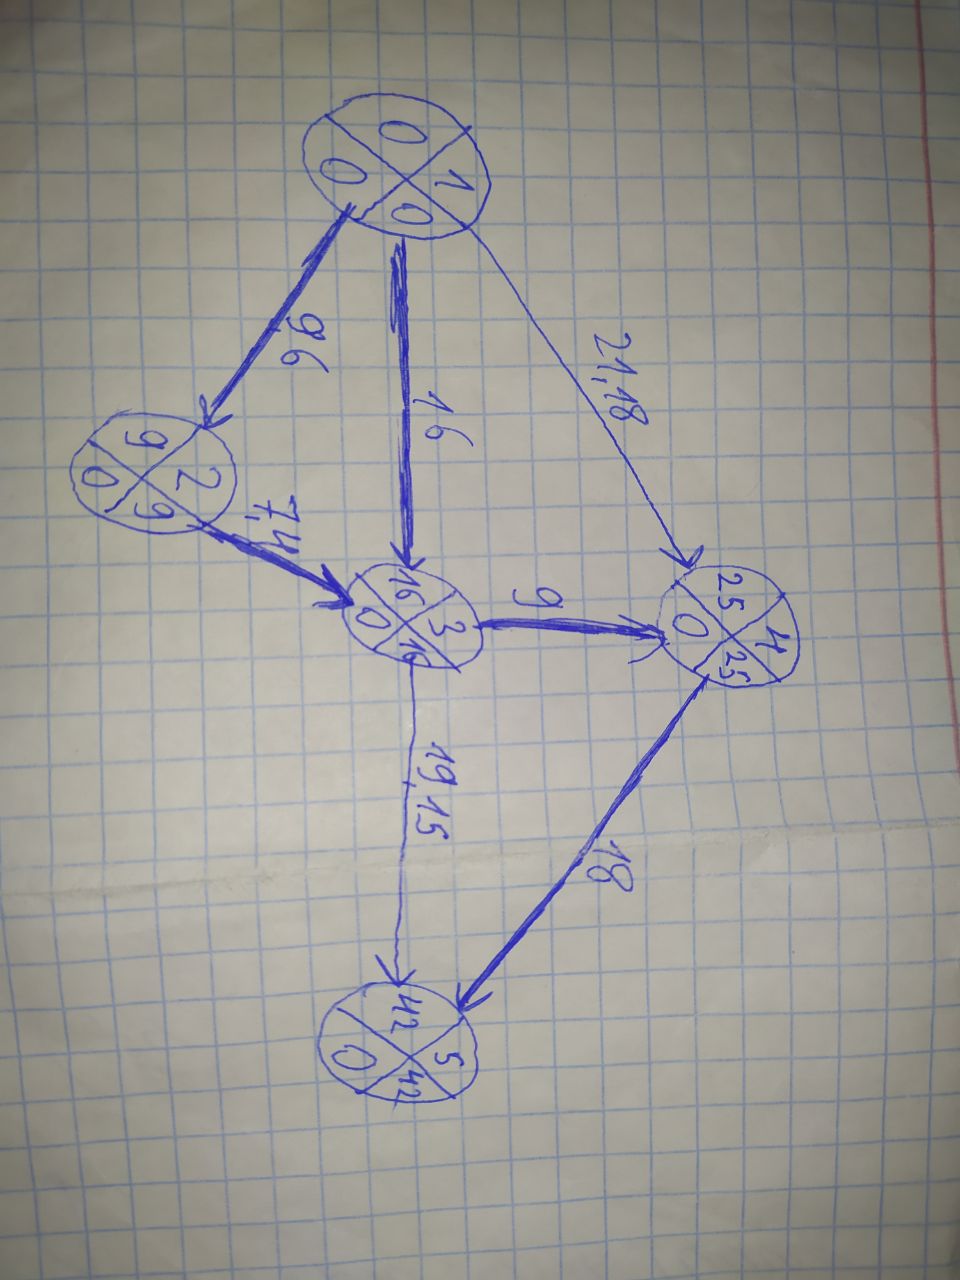 4
25 25
0
21,18
18
9
1
0 0
0
16
3
16 16
0
19,15
5
42 42
0
9,6
7,4
2
9 9
0